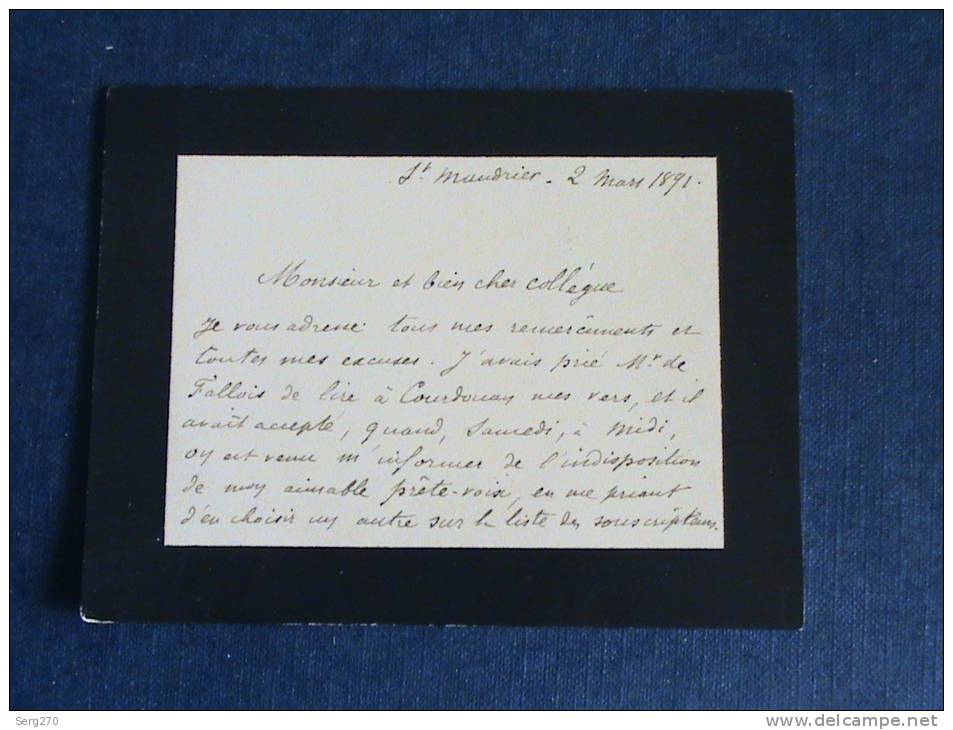 St Mandrier - 2 Mars 1891.
Monsieur et bien cher collégue
Je vous adresse tous mes remerciments et
toutes mes excuses. J'avais prié Mr de
Fallois de lire à Courdouan mes vers, et il
avait accepté, quand, Samedi, à midi,
on est venu m'informer de l'indisposition
de mon aimable prête-voix, en me priant
d'en choisir un autre sur la liste des souscripteurs.
Serg270
www.delcampe.net